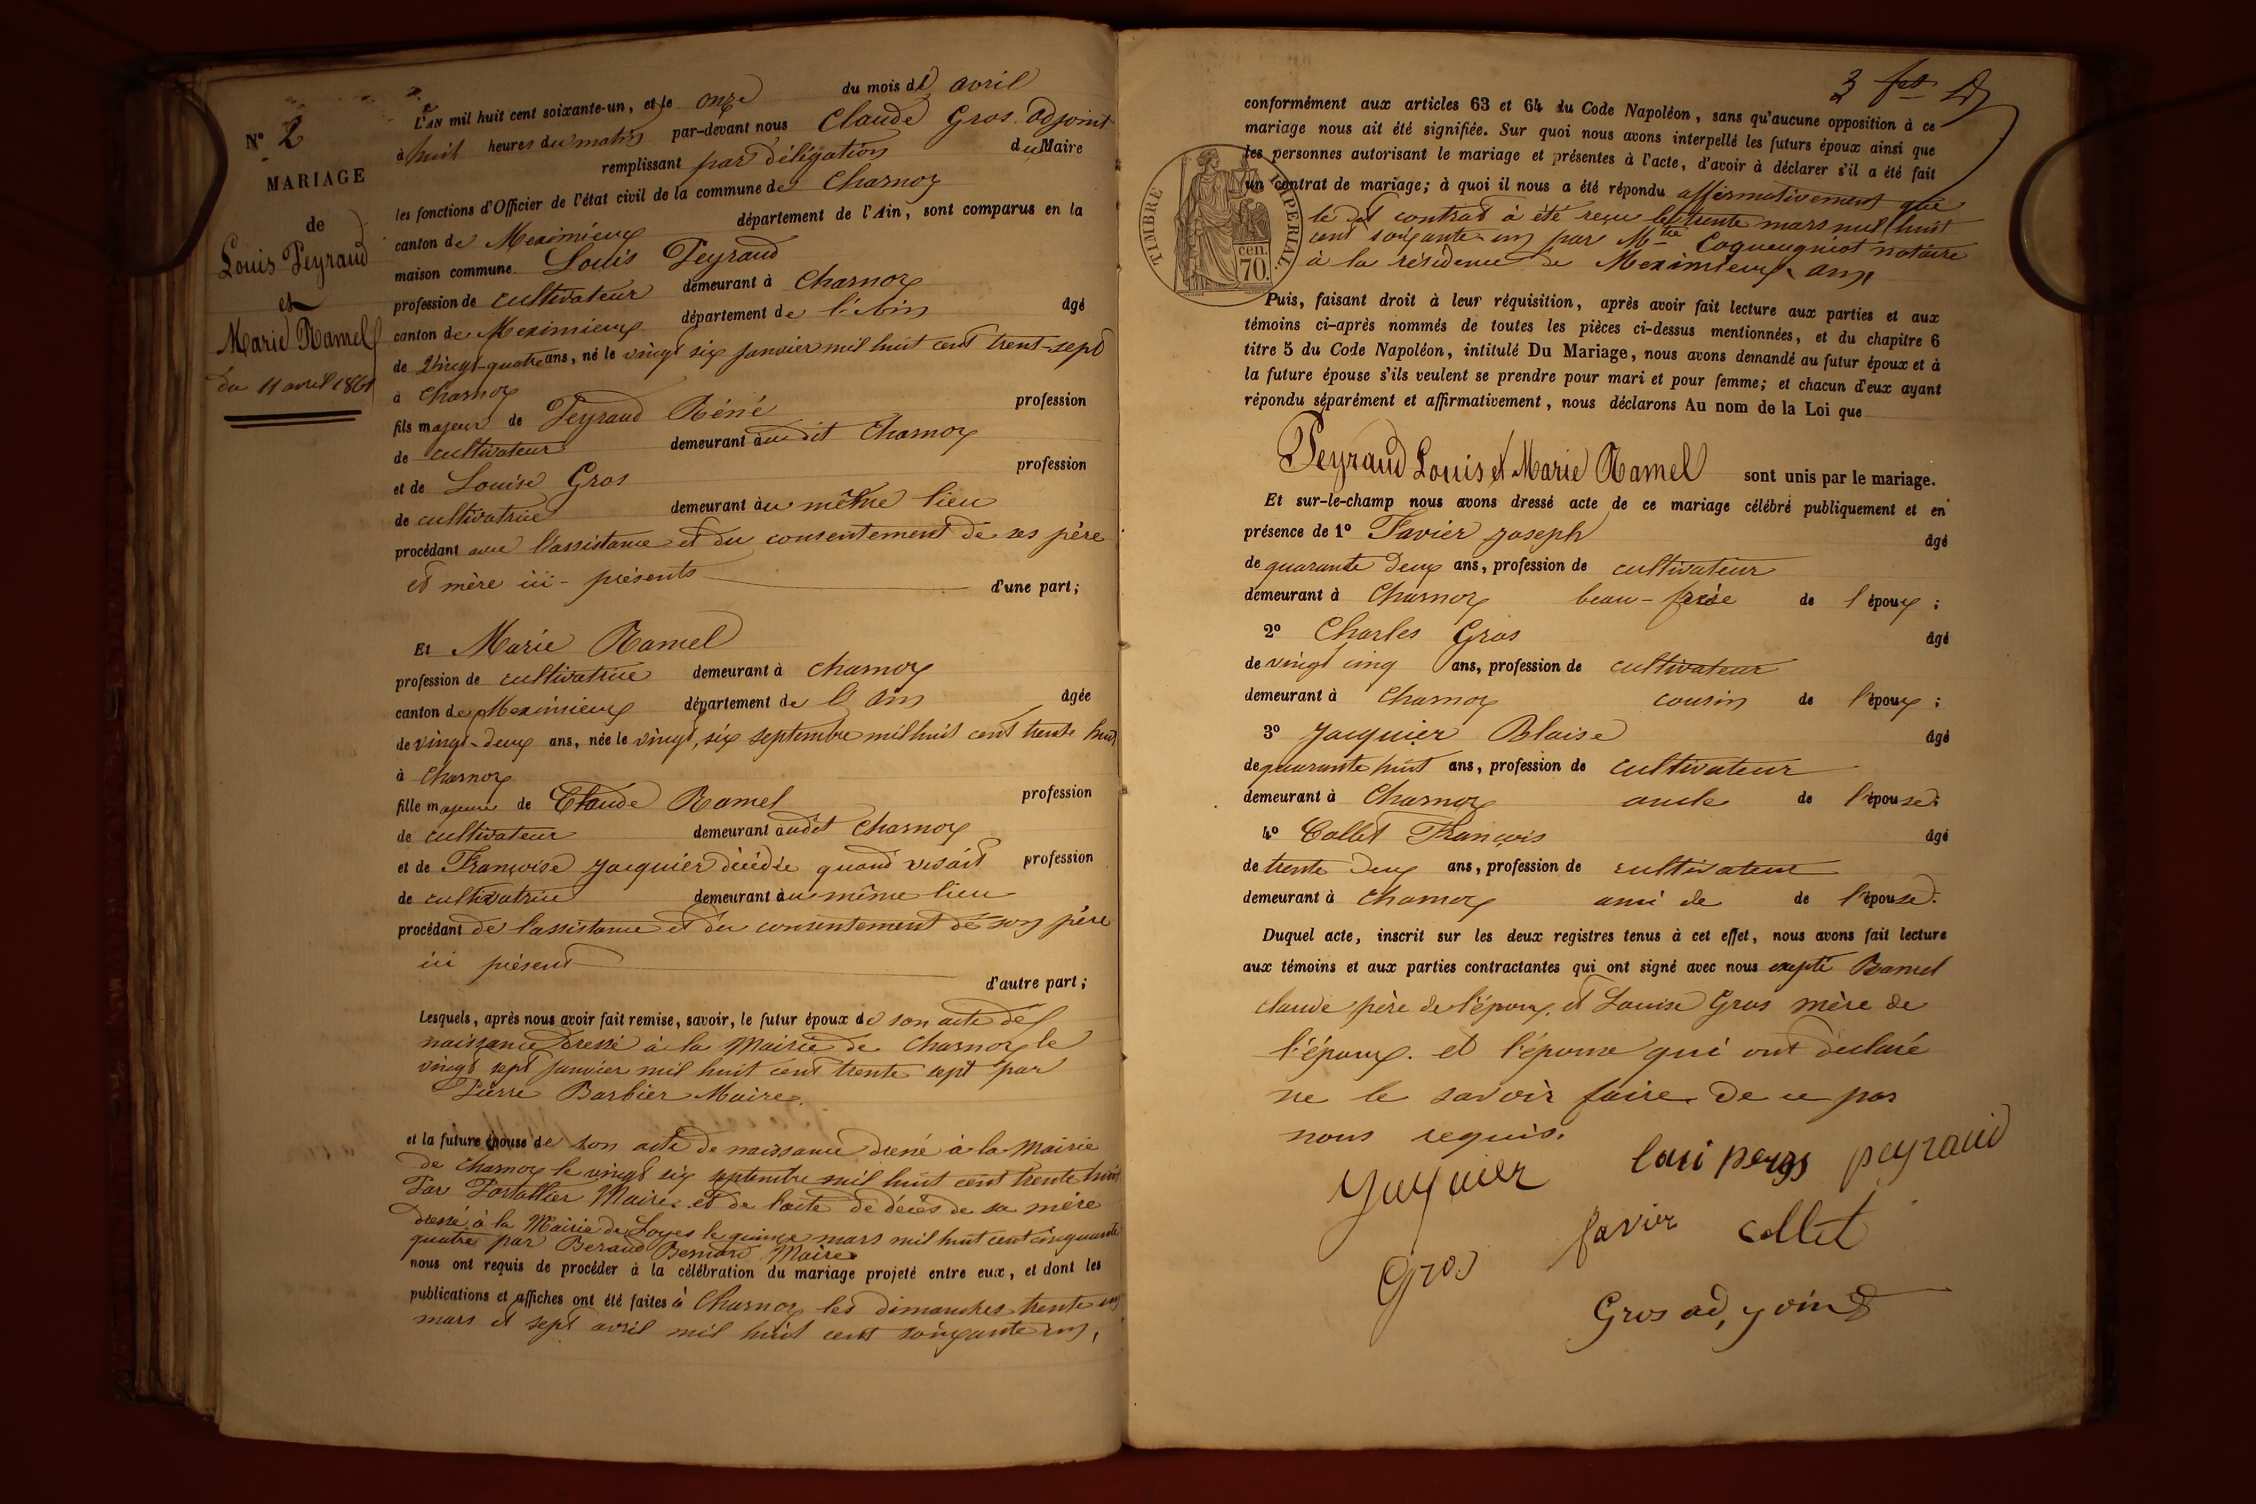 N° 2
MARIAGE
de
Louis Peyraud
et
Marie Ramel
du 11 avril 1861
L'AN mil huit cent soixante-un, et le onze du mois de avril
à huit heures du matin par-devant nous Claude Gros adjoint
remplissant par délégation du Maire
les fonctions d'Officier de l'état civil de la commune de Charnoz
canton de Meximieux département de l'Ain, sont comparus en la
maison commune Louis Peyraud
profession de cultivateur demeurant à Charnoz
canton de Meximieux département de l'Ain âgé
de vingt-quatre ans, né le vingt six janvier mil huit cent trent-sept
à Charnoz
fils majeur de Peyraud Réné profession
de cultivateur demeurant au dit Charnoz
et de Louise Gros profession
de cultivatrice demeurant au même lieu
procédant avec l'assistance et du consentement de ses père
et mère ici-présents d'une part;
Et Marie Ramel
profession de cultivatrice demeurant à Charnoz
canton de Meximieux département de l'Ain âgée
de vingt-deux ans, née le vingt, six septembre mil huit cent trente huit
à Charnoz
fille majeure de Claude Ramel profession
de cultivateur demeurant audit Charnoz
et de Françoise Jacquier décédée quand vivait profession
de cultivatrice demeurant au même lieu
procédant de l'assistance et du consentement de son père
ici présent d'autre part;
Lesquels, après nous avoir fait remise, savoir, le futur époux de son acte de
naissance dressé à la Mairie de Charnoz le
vingt sept janvier mil huit cent trente sept par
Pierre Barbier Maire.
et la future épouse de son acte de naissance dressé à la Mairie
de Charnoz le vingt six septembre mil huit cent trente huit
Par Portallier Maire. et de l'acte de décès de sa mère
dressé à la Mairie de Loyes le quinze mars mil huit cent cinquante
quatre par Beraud Bernard Maire
nous ont requis de procéder à la célébration du mariage projeté entre eux, et dont les
publications et affiches ont été faites à Charnoz les dimanches trente un
mars et sept avril mil huit cent soixante un,
3
conformément aux articles 63 et 64 du Code Napoléon, sans qu'aucune opposition à ce
mariage nous ait été signifiée. Sur quoi nous avons interpellé les futurs époux ainsi que
les personnes autorisant le mariage et présentes à l'acte, d'avoir à déclarer s'il a été fait
un contrat de mariage; à quoi il nous a été répondu affirmativement que
le dit contrat à été reçu le trente mars mil huit
cent soixante-un par Mtre Coqueugniot notaire
à la résidence de Meximieux
TIMBRE IMPERIAL
70. cen
Puis, faisant droit à leur réquisition, après avoir fait lecture aux parties et aux
témoins ci-après nommés de toutes les pièces ci-dessus mentionnées, et du chapitre 6
titre 5 du Code Napoléon, intitulé Du Mariage, nous avons demandé au futur époux et à
la future épouse s'ils veulent se prendre pour mari et pour femme; et chacun d'eux ayant
répondu séparément et affirmativement, nous déclarons Au nom de la Loi que
Peyraud Louis et Marie Ramel sont unis par le mariage.
Et sur-le-champ nous avons dressé acte de ce mariage célébré publiquement et en
présence de 1° Favier joseph âgé
de quarante deux ans, profession de cultivateur
demeurant à Charnoz beau-frère de l'époux;
2° Charles Gros âgé
de vingt cinq ans, profession de cultivateur
demeurant à Charnoz cousin de l'époux;
3° Jacquier Blaise âgé
de quarante huit ans, profession de cultivateur
demeurant à Charnoz oncle de l'épouse;
4° Collet François âgé
de trente deux ans, profession de cultivateur
demeurant à Charnoz ami de de l'épouse.
Duquel acte, inscrit sur les deux registres tenus à cet effet, nous avons fait lecture
aux témoins et aux parties contractantes qui ont signé avec nous exepté Ramel
Claude père de l'époux. et Louise Gros mère de
l'époux. et l'épouse qui ont déclaré
ne le savoir faire. De ce pas
nous requis.
Jacquier peyraud
favier collet
Gros
Gros ad, yoint